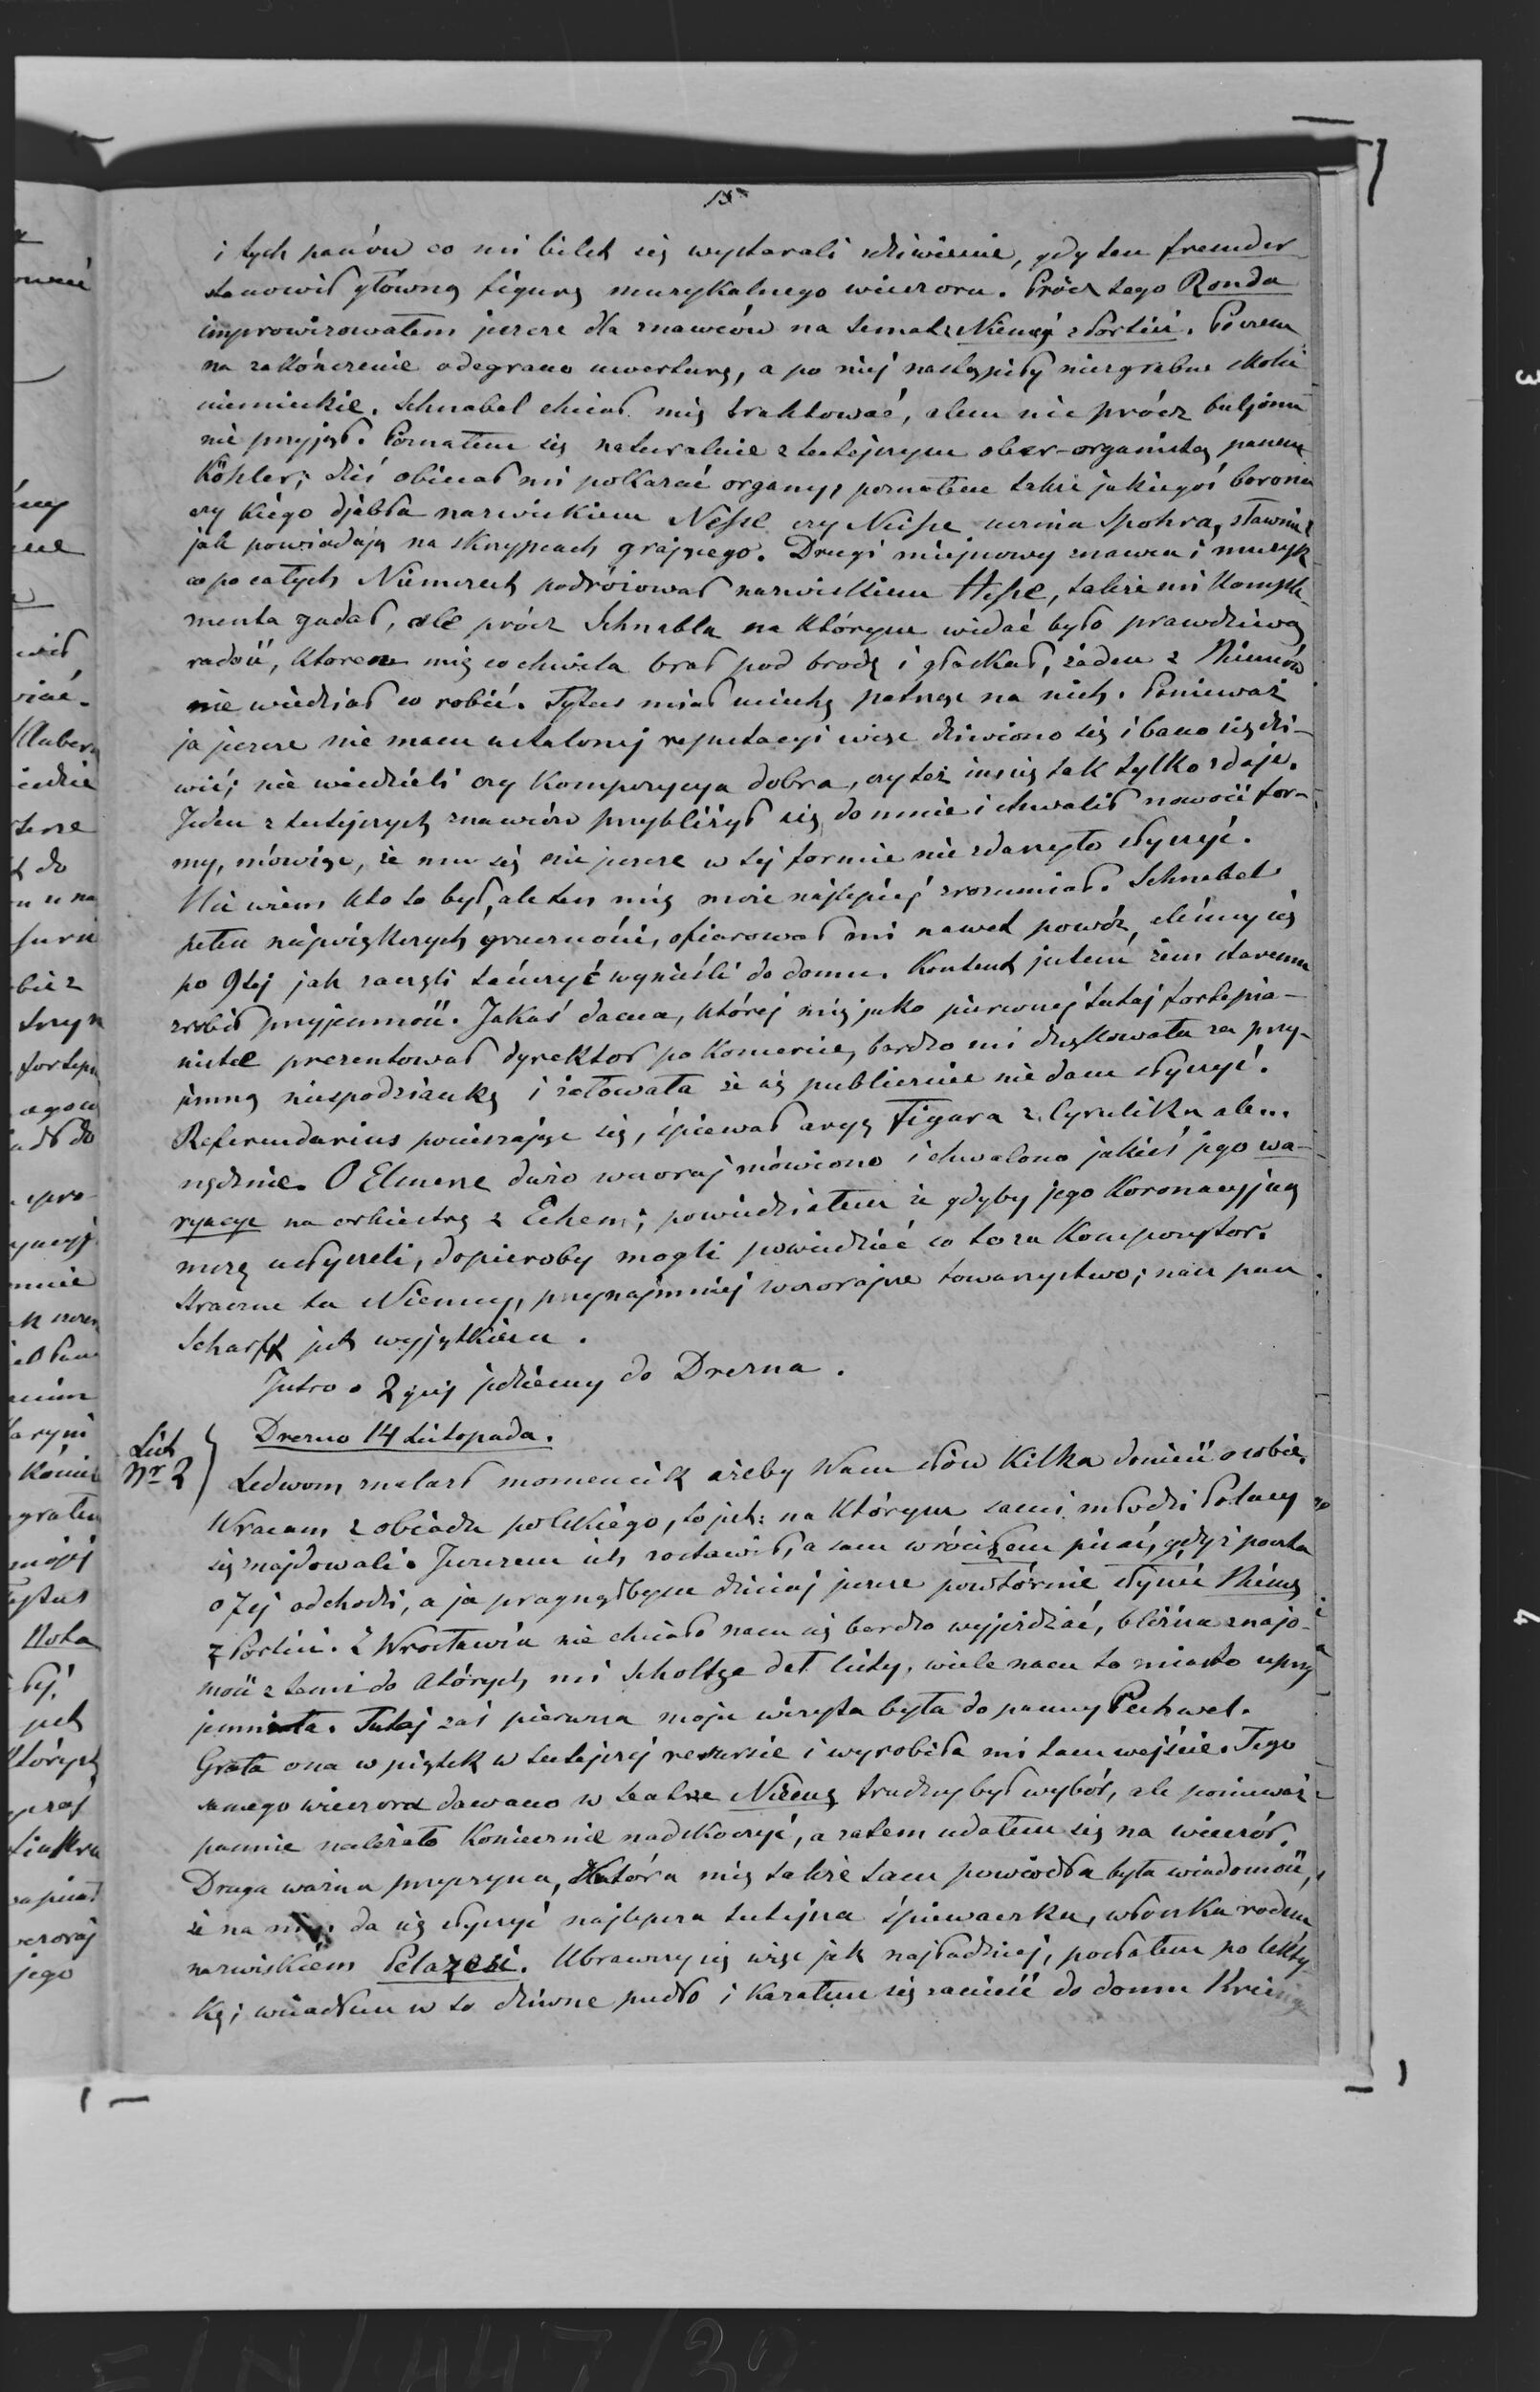 15
i tych panów co mi bilet się wystarali zdziwienie, gdy ten fremder
stanowił główną figurę muzykalnego wieczoru. Prócz tego Ronda
improwizowałem jeszcze dla znawców na temat z Niemej z Portici. Poczem
na zakończenie odegrano uwerturę, a po niej nastąpiły niezgrabne skoki
niemieckie. Schnabel chciał mię traktować, alem nic prócz buljonu
nie przyjął. Poznałem się naturalnie z tutejszym ober-organistą panem
Köhler; dziś obiecał mi pokazać organy, poznałem także jakiegoś barona
czy kiego djabła nazwiskiem Nesse czy Neisse ucznia Spohra, sławnie
jak powiadają na skrzypcach grającego. Drugi miejscowy znawca i muzyk
co po całych Niemczech podróżował nazwiskiem Hesse, także mi komple-
menta gadał, ale prócz Schnabla na którym widać było prawdziwą
radość, który mię co chwila brał pod brodę i głaskał, żaden z Niemców
nie wiedział co robić. Tytus miał uciechę patrząc na nich. Ponieważ
ja jeszcze nie mam ustalonej reputacyi więc dziwiono się i bano się dzi-
wić; nie wiedzieli czy kompozycya dobra, czy też im się tak tylko zdaje.
Jeden z tutejszych znawców przybliżył się do mnie i chwalił nowość for-
my, mówiąc, że mu się nic jeszcze w tej formie nie zdarzyło słyszyć.
Nie wiem kto to był, ale ten mię może najlepiej zrozumiał. Schnabel
pełen największych grzeczności, ofiarował mi nawet powóz, cleśmy się
po 9tej jak zaczęli tańczyć wynieśli do domu. Kontent jestem żem staremu
zrobił przyjemność. Jakaś dama, której mię jako pierwszej tutaj fortepia-
nistce prezentował dyrektor po koncercie, bardzo mi dziękowała za przy-
jemną niespodziankę i żałowała że się publicznie nie dam słyszyć.
Referendarius pocieszając się, śpiewał aryę Figara z Cyrulika ale...
nędznie. O Elsnerze dużo wczoraj mówiono i chwalono jakieś jego wa-
ryacye na orkiestrę z Echem; powiedziałem że gdyby jego Koronacyjną
mszę usłyszeli, dopieroby mogli powiedzieć co to za kompozytor.
Straszne tu Niemcy, przynajmniej wczorajsze towarzystwo; nasz pan
Scharff jest wyjątkiem.
Jutro o 2giej jedziemy do Drezna.
Drezno 14 Listopada.
List
Nr 2
Ledwom znalazł momencik ażeby Wam słów kilka donieść o sobie.
Wracam z obiadu polskiego, to jest: na którym sami młodzi Polacy
się znajdowali. Jeszczem ich zostawił, a sam wróciłem pisać, gdyż poczta
o 7ej odchodzi, a ja pragnąłbym dzisiaj jeszcze powtórnie słyszeć Niemę
z Portici. Z Wrocławia nie chciało nam się bardzo wyjeżdżać, bliższa znajo-
mość z tami do których mi Scholtze dał listy, wiele nam to miasto uprzy
jemniała. Tutaj zaś pierwsza moja wizyta była do panny Pechwel.
Grała ona w piątek w tutejszej resursie i wyrobiła mi tam wejście. Tego
samego wieczora dawano w teatrze Niemę, trudny był wybór, ale ponieważ
pannie należało koniecznie nadskoczyć, a zatem udałem się na wieczór.
Druga ważna przyczyna, która mię także tam powiodła była wiadomość,
że na nim da się słyszyć najlepsza tutejsza śpiewaczka, włoszka rodem
nazwiskiem Pelazesi. Ubrawszy się więc jak najładniej, posłałem po lekty-
kę; wsiadłem w to dziwne pudło i kazałem się zanieść do domu Kreinga